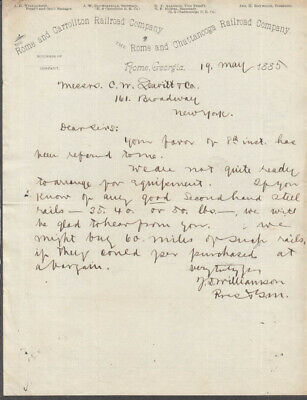 J. D. WILLIAMSON,
Rome and Carrollton Railroad Company.
THE Rome and Chattanooga Railroad Company.
BUSINESS OF
COMPANY.
Rome, Georgia, 19 May 1885
Messrs. C. W. Leavitt & Co.
161. Broadway
New York.
Dear Sirs:
Your favor of 8th inst. has
been referred to me.
We are not quite ready
to arrange for Equipment. If you
know of any good Second hand steel
rails — 35. 40. or 50. lbs — we will
be glad to hear from you. We
might buy 60. miles of such rails,
if they could be purchased at
a bargain.
Very truly yrs
J. D. Williamson
Pres & G.M.